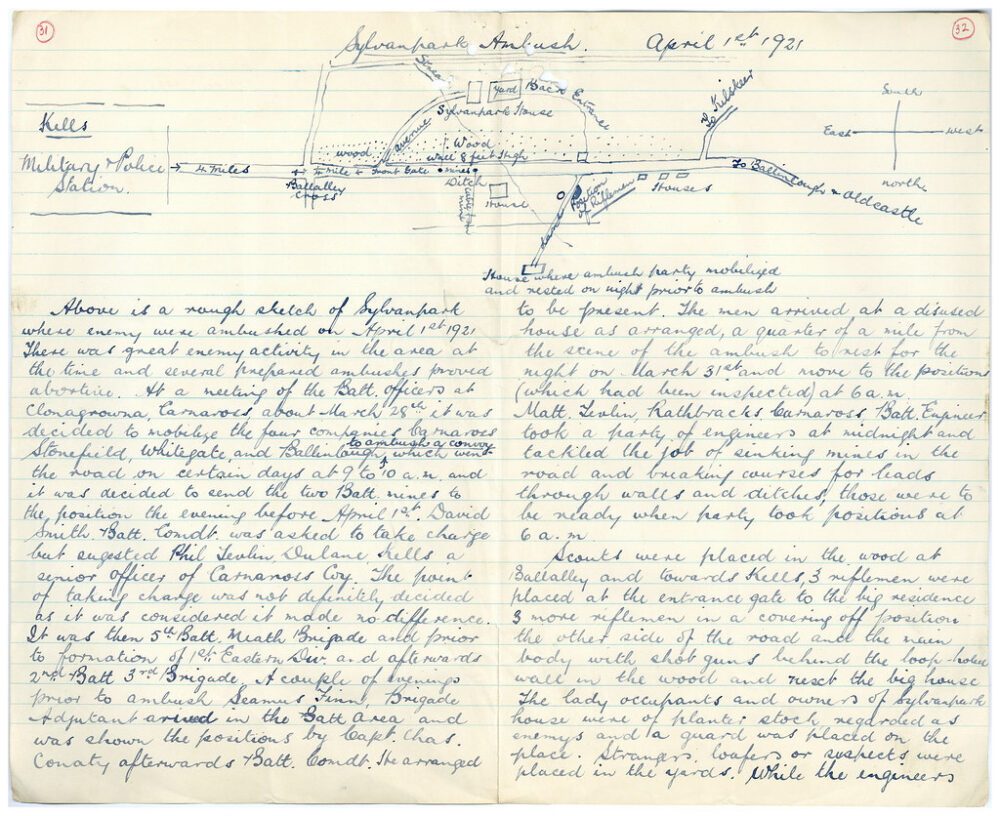 31
32
Sylvanpark Ambush. April 1st 1921
Kells
Military & Police
Station.
4 Miles
Ballalley
Cross
¼ mile
Front Gate
mines
Ditch
wood
avenue
Wood
wall 8 feet high
Sylvanpark House
Yard
Back Entrance
House
lane
Position
of Riflemen
Houses
To Kilskeer
To Ballinlough & Oldcastle
South
East
West
north
House where ambush party mobilized
and rested on night prior to ambush
Above is a rough sketch of Sylvanpark
where enemy were ambushed on April 1st 1921
There was great enemy activity in the area at
the time and several prepared ambushes proved
abortive. At a meeting of the Batt. officers at
Clonagrowna, Carnaross, about March 28th it was
decided to mobilize the four companies Carnaross
Stonefield, Whitegate, and Ballinlough, to ambush a convoy which went
the road on certain days at 9 to 10 a.m. and
it was decided to send the two Batt. mines to
the position the evening before April 1st. David
Smith. Batt. Comdt. was asked to take charge
but sugested Phil Tevlin, Dulane, Kells a
senior officer of Carnaross Coy. The point
of taking charge was not definitely decided
as it was considered it made no difference.
It was then 5th Batt. Meath Brigade and prior
to formation of 1st Eastern Div. and afterwards
2nd Batt 3rd Brigade. A couple of evenings
prior to ambush Seamus Finn, Brigade
Adjutant arived in the Batt area and
was shown the positions by Capt. Chas.
Conaty afterwards Batt. Comdt. He arranged
to be present. The men arrived at a disused
house as arranged, a quarter of a mile from
the scene of the ambush to rest for the
night on March 31st and move to the positions
(which had been inspected) at 6 a.m.
Matt. Tevlin, Rathbracks Carnaross Batt. Engineer
took a party of engineers at midnight and
tackled the job of sinking mines in the
road and breaking courses for leads
through walls and ditches, those were to
be ready when party took positions at
6 a.m.
Scouts were placed in the wood at
Ballalley and towards Kells, 3 riflemen were
placed at the entrance gate to the big residence
3 more riflemen in a covering off position
the other side of the road and the main
body with shot guns behind the loop-holed
wall in the wood and next the big house
The lady occupants and owners of Sylvanpark
house were of planter stock regarded as
enemys and a guard was placed on the
place. Strangers, loafers or suspects were
placed in the yards. While the engineers